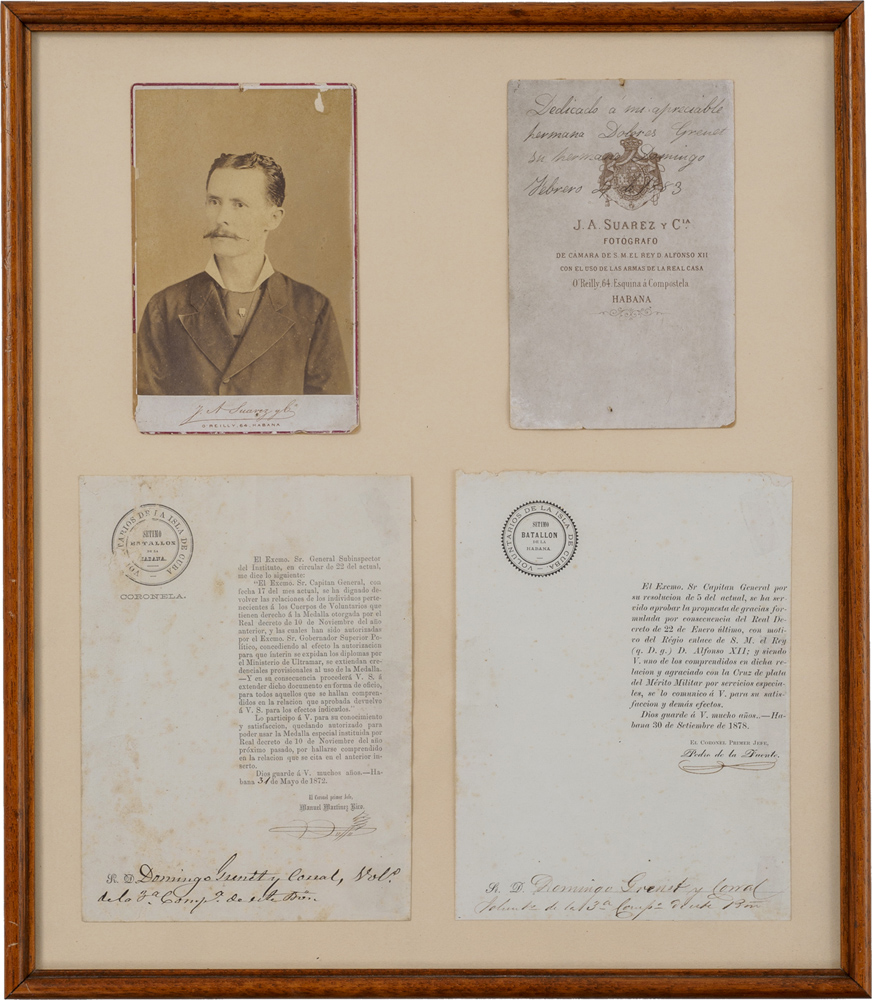 J. A. Suarez y Cia
O'REILLY 64. HABANA
Dedicado a mi apreciable
hermana Dolores Grenet
su hermano Domingo
Febrero de 1883
J. A. SUAREZ Y CIA.
FOTOGRAFO
DE CAMARA DE S. M. EL REY D. ALFONSO XII
CON EL USO DE LAS ARMAS DE LA REAL CASA
O'Reilly, 64, Esquina á Compostela
HABANA
VOLUNTARIOS DE LA ISLA DE CUBA
SETIMO
BATALLON
DE LA
HABANA.
CORONELA.
El Excmo. Sr. General Subinspector
del Instituto, en circular de 22 del actual,
me dice lo siguiente:
"El Excmo. Sr. Capitan General, con
fecha 17 del mes actual, se ha dignado de-
volver las relaciones de los individuos perte-
necientes á los Cuerpos de Voluntarios que
tienen derecho á la Medalla otorgada por el
Real decreto de 10 de Noviembre del año
anterior, y las cuales han sido autorizadas
por el Excmo. Sr. Gobernador Superior Po-
lítico, concediendo al efecto la autorizacion
para que interin se expidan los diplomas por
el Ministerio de Ultramar, se extiendan cre-
denciales provisionales al uso de la Medalla.
—Y en su consecuencia procederá V. S. á
extender dicho documento en forma de oficio,
para todos aquellos que se hallan compren-
didos en la relacion que aprobada devuelvo
á V. S. para los efectos indicados."
Lo participo á V. para su conocimiento
y satisfaccion, quedando autorizado para
poder usar la Medalla especial instituida por
Real decreto de 10 de Noviembre del año
próximo pasado, por hallarse comprendido
en la relacion que se cita en el anterior in-
serto.
Dios guarde á V. muchos años.—Ha-
bana 31 de Mayo de 1872.
El Coronel primer Jefe,
Manuel Martinez Rico.
S. D. Domingo Grenet y Corral, Volo.
de la 3a. Compa. de este Bon.
VOLUNTARIOS DE LA ISLA DE CUBA
SETIMO
BATALLON
DE LA
HABANA.
El Excmo. Sr Capitan General por
su resolucion de 5 del actual, se ha ser-
vido aprobar la propuesta de gracias for-
mulada por consecuencia del Real De-
creto de 22 de Enero último, con moti-
vo del Régio enlace de S. M. el Rey
(q. D. g.) D. Alfonso XII; y siendo
V. uno de los comprendidos en dicha re-
lacion y agraciado con la Cruz de plata
del Mérito Militar por servicios especia-
les, se lo comunico á V. para su satis-
faccion y demás efectos.
Dios guarde á V. mucho años.—Ha-
bana 30 de Setiembre de 1878.
EL CORONEL PRIMER JEFE,
Pedro de la
S. D. Domingo Grenet y Corral
de la 3a Compa de este Bon